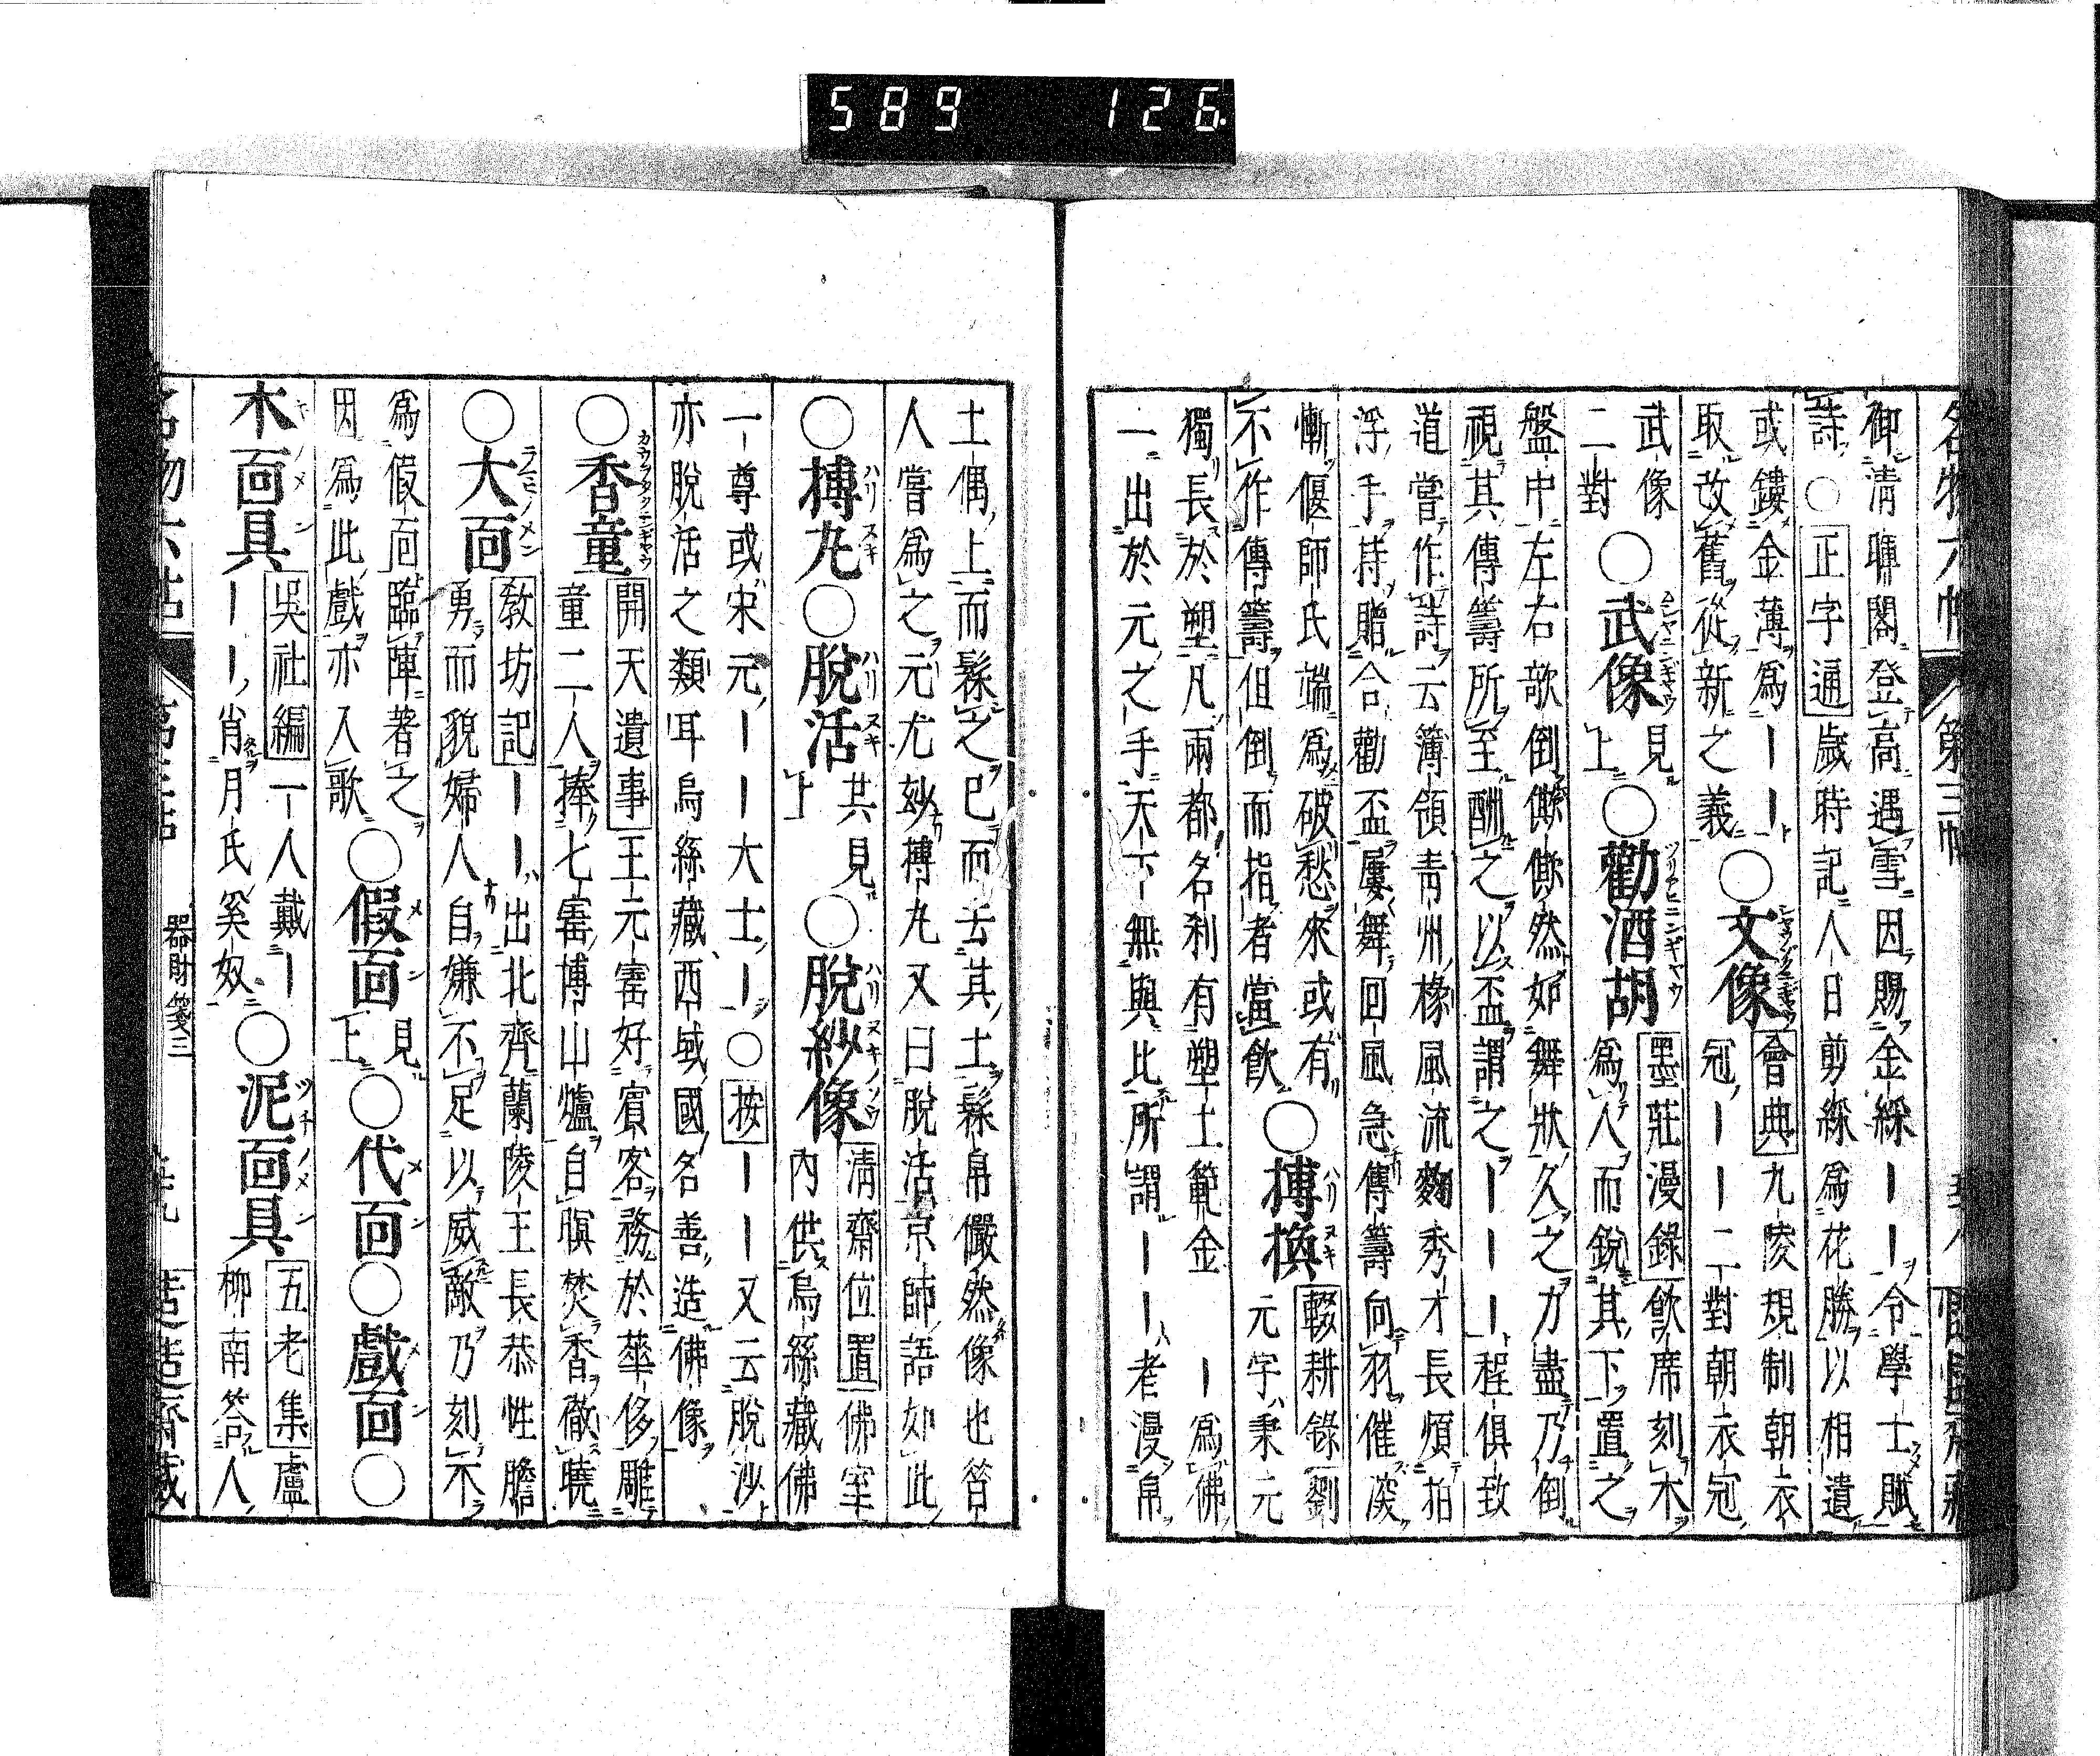 589 126
名物六帖 第三帖
御清暉閣登高遇雪因賜金綵ーー令學士賦
詩○正字通歲時記人日剪綵爲花勝以相遺
或鏤金薄爲ーー○文像會典九陵規制朝衣
取改舊從新之義 冠ーー二對朝衣冠
武像○武像見○勸酒胡墨莊漫錄飲席刻木
二對 上 爲人而銳其下置之
盤中左右欹倒僛僛然如舞狀久之力盡乃倒
視其傳籌所至酬之以盃謂之ーーー程俱致
道嘗作詩云簿領青州椽風流麴秀才長煩拍
浮手持贈合勸盃屢舞回風急傳籌向羽催深
慚偃師氏端爲破愁來或有○摶換輟耕錄劉
不作傳籌但倒而指者當飲 元字秉元
獨長於塑凡兩都名刹有塑土範金 ー爲佛
一出於元之手天下無與比所謂ーー者漫帛
土偶上而髹之已而去其土髹帛儼然像也昝
人嘗爲之元尤玅摶丸又曰脫活京師語如此
○摶丸○脫活共見○脫紗像清齋位置佛室
ハリスキ ハリスキ 上 ハリヌキノゾウ 內供烏絲藏佛
一尊或宋元ーー大士ー○按ーー又云脫沙
亦脫活之類耳烏絲藏西域國名善造佛像
○香童開天遺事王元寳好賓客務於華侈雕
童二人捧七寳博山爐自暝焚香徹曉
○大面教坊記ーー出北齊蘭陵王長恭性膽
勇而貌婦人自嫌不足以威敵乃刻木
爲假面臨陣著之○假面見○代面○戲面○
因爲此戲亦入歌 上
木面具吳社編一人戴ー○泥面具五老集盧
ーー肖月氏奚奴 柳南答人
器財箋三